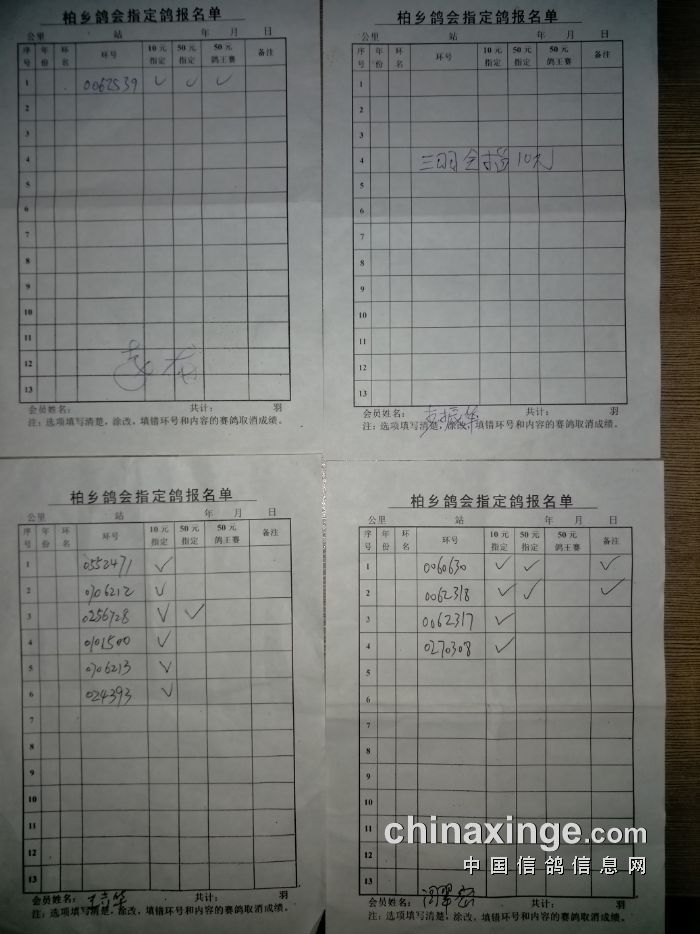 柏乡鸽会指定鸽报名单
公里 站 年 月 日
序号 年份 环名 环号 10元指定 50元指定 50元鸽王赛 备注
1 0062539 ✓ ✓ ✓
2
3
4
5
6
7
8
9
10
11
12
13
会员姓名： 共计： 羽
注：选项填写清楚，涂改，填错环号和内容的赛鸽取消成绩。
柏乡鸽会指定鸽报名单
公里 站 年 月 日
序号 年份 环名 环号 10元指定 50元指定 50元鸽王赛 备注
1
2
3
4 三羽全指10元
5
6
7
8
9
10
11
12
13
会员姓名： 共计： 羽
注：选项填写清楚，涂改，填错环号和内容的赛鸽取消成绩。
柏乡鸽会指定鸽报名单
公里 站 年 月 日
序号 年份 环名 环号 10元指定 50元指定 50元鸽王赛 备注
1 0552471 ✓
2 0706212 ✓
3 0256728 ✓ ✓
4 0101500 ✓
5 0706213 ✓
6 024393 ✓
7
8
9
10
11
12
13
会员姓名： 共计： 羽
注：选项填写清楚，涂改，填错环号和内容的赛鸽取消成绩。
柏乡鸽会指定鸽报名单
公里 站 年 月 日
序号 年份 环名 环号 10元指定 50元指定 50元鸽王赛 备注
1 0060630 ✓ ✓ ✓
2 0062318 ✓ ✓ ✓
3 0062317 ✓
4 0270308 ✓
5
6
7
8
9
10
11
12
13
会员姓名： 共计： 羽
注：选项填写清楚，涂改，填错环号和内容的赛鸽取消成绩。
chinaxinge.com
中国信鸽信息网